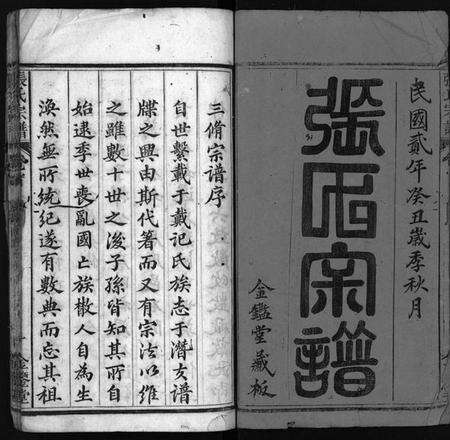 民國貳年癸丑歲季秋月
張氏宗譜
金鑑堂藏板
三脩宗谱序
自世繫載于戴记氏族志于潛夫谱
牒之興由斯代著而又有宗法以維
之雖數十世之後子孫皆知其所自
始逮季世喪亂國亡族散人自為生
渙然無所统纪遂有數典而忘其祖
張氏宗譜
金鑑堂